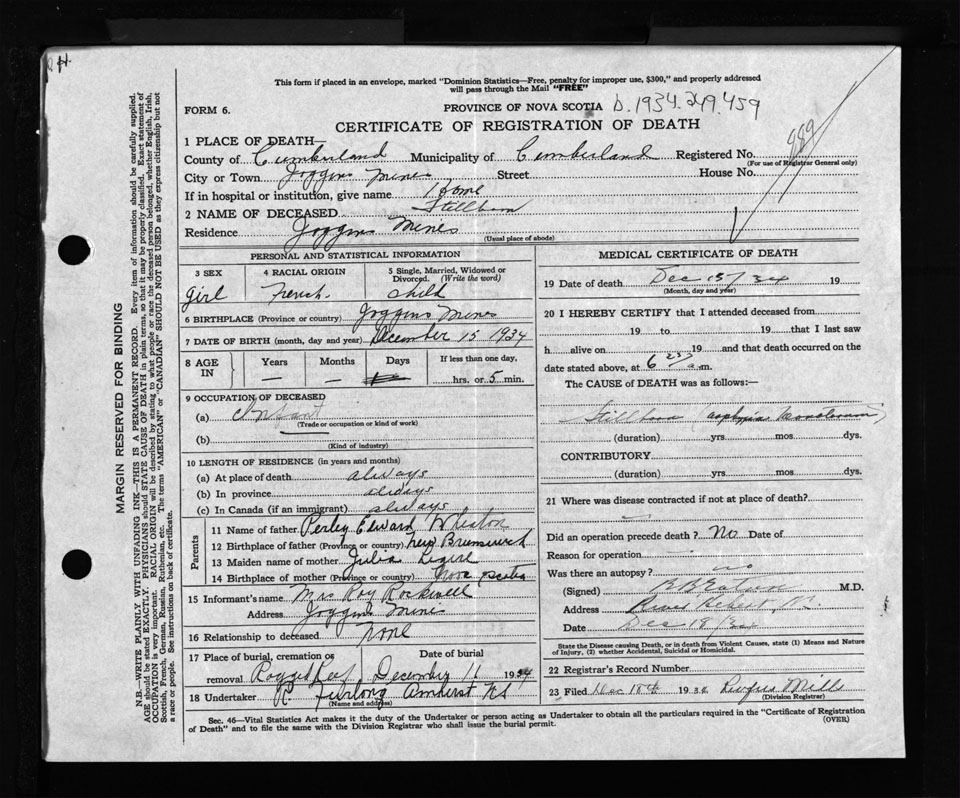 This form if placed in an envelope, marked "Dominion Statistics—Free, penalty for improper use, $300," and properly addressed
will pass through the Mail "FREE"
FORM 6.
PROVINCE OF NOVA SCOTIA D.1934.249.459
CERTIFICATE OF REGISTRATION OF DEATH
1 PLACE OF DEATH—
County of Cumberland Municipality of Cumberland Registered No. 989
(For use of Registrar General only)
City or Town Joggins Mines Street House No.
If in hospital or institution, give name Home
2 NAME OF DECEASED Stillborn
Residence Joggins Mines
(Usual place of abode)
PERSONAL AND STATISTICAL INFORMATION
3 SEX 4 RACIAL ORIGIN 5 Single, Married, Widowed or Divorced. (Write the word)
Girl French. child
6 BIRTHPLACE (Province or country) Joggins Mines
7 DATE OF BIRTH (month, day and year) December 15 1934
8 AGE IN Years Months Days If less than one day,
— — hrs. or 5 min.
9 OCCUPATION OF DECEASED
(a) Infant
(Trade or occupation or kind of work)
(b)
(Kind of industry)
10 LENGTH OF RESIDENCE (in years and months)
(a) At place of death always
(b) In province always
(c) In Canada (if an immigrant) always
Parents
11 Name of father Perley Edward Wheaton
12 Birthplace of father (Province or country) New Brunswick
13 Maiden name of mother Julia
14 Birthplace of mother (Province or country) Nova Scotia
15 Informant's name Mrs Roy Rockwell
Address Joggins Mines
16 Relationship to deceased none
17 Place of burial, cremation or removal Date of burial
Ragged Reef December 1934
18 Undertaker R. Furlong Amherst NS
(Name and address)
MEDICAL CERTIFICATE OF DEATH
19 Date of death Dec 15/34 19
(Month, day and year)
20 I HEREBY CERTIFY that I attended deceased from
19 to 19 that I last saw
h alive on 19 and that death occurred on the
date stated above, at 6 a.m.
The CAUSE of DEATH was as follows:—
Stillborn (asphyxia neonatorum)
(duration) yrs. mos. dys.
CONTRIBUTORY
(duration) yrs. mos. dys.
21 Where was disease contracted if not at place of death?
Did an operation precede death? No Date of
Reason for operation
Was there an autopsy? no
(Signed) M.D.
Address River Hebert, N.S.
Date Dec 18/34
State the Disease causing Death, or in death from Violent Causes, state (1) Means and Nature
of Injury, (2) whether Accidental, Suicidal or Homicidal.
22 Registrar's Record Number
23 Filed Dec 18th 1934 Rufus Mills
(Division Registrar)
Sec. 46—Vital Statistics Act makes it the duty of the Undertaker or person acting as Undertaker to obtain all the particulars required in the "Certificate of Registration
of Death" and to file the same with the Division Registrar who shall issue the burial permit.
(OVER)
MARGIN RESERVED FOR BINDING
N.B.—WRITE PLAINLY WITH UNFADING INK—THIS IS A PERMANENT RECORD. Every item of information should be carefully supplied.
AGE should be stated EXACTLY. PHYSICIANS should STATE CAUSE OF DEATH in plain terms, so that it may be properly classified. Exact statement of
OCCUPATION is very important. RACIAL ORIGIN will be described by stating to what people or race the deceased person belonged, whether English, Irish,
Scottish, French, German, Russian, Ruthenian, etc. The terms "AMERICAN" or "CANADIAN" SHOULD NOT BE USED as they express citizenship but not
a race or people. See instructions on back of certificate.